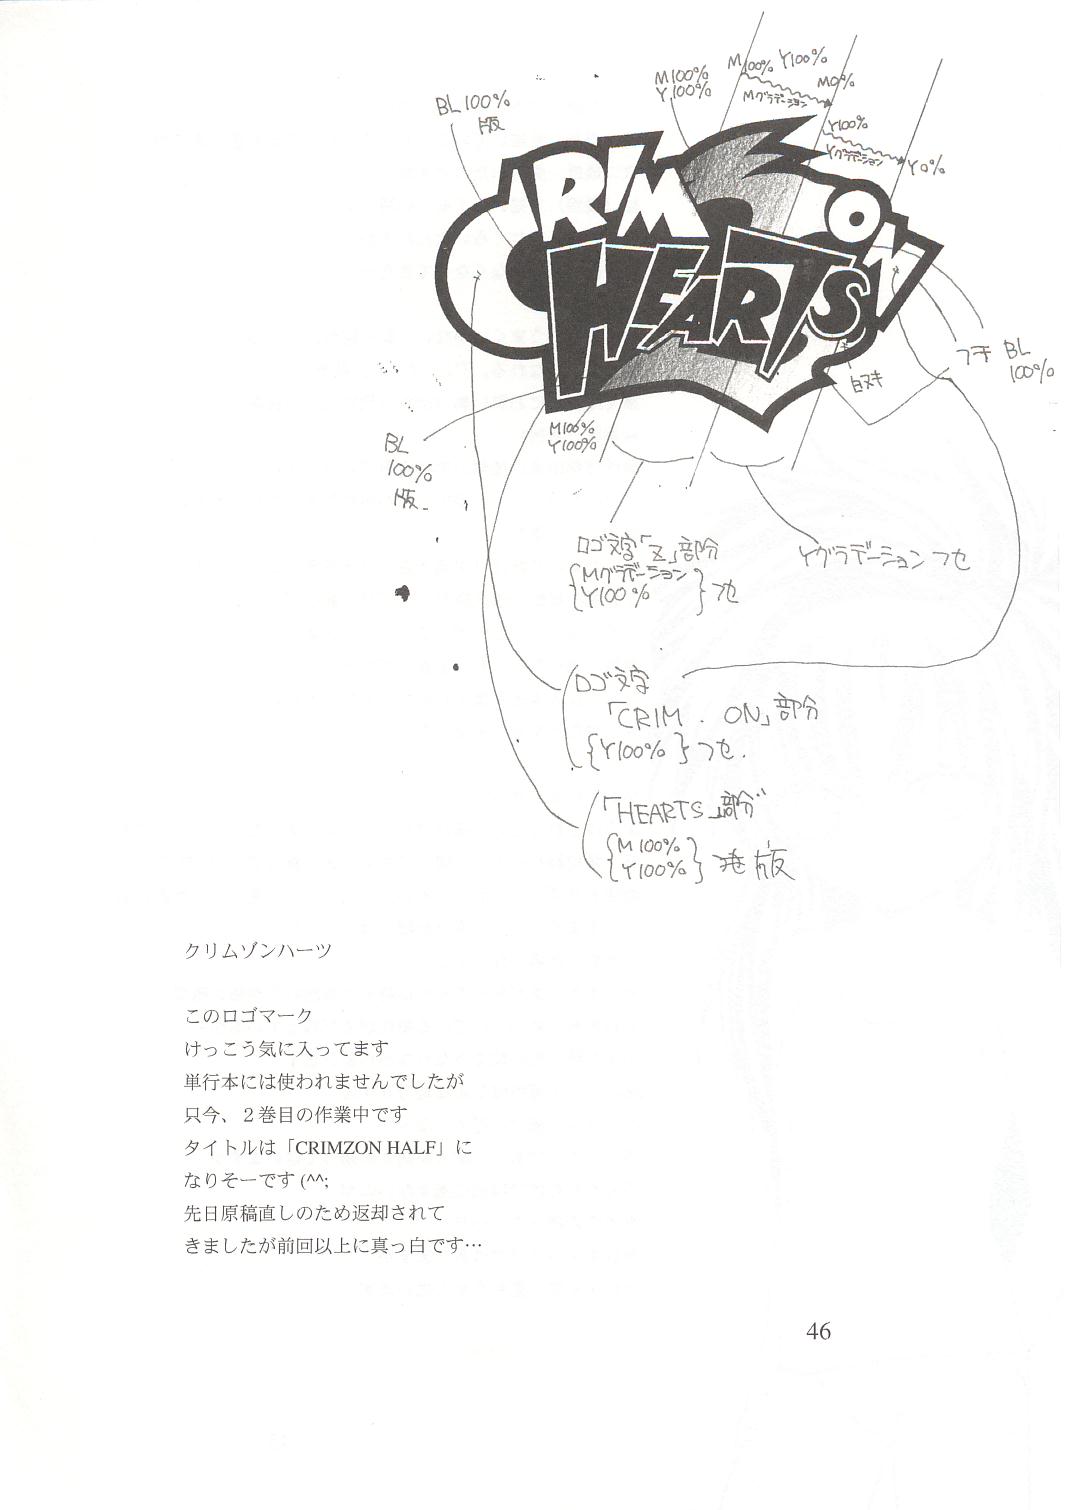 M100% Y100%
M0%
Mグラデーション
M100%
Y100%
BL 100%
版
Y100%
Yグラデーション
Y0%
CRIMZON
HEARTS
フチ BL
100%
白ヌキ
M100%
Y100%
BL
100%
版
ロゴ文字「Z」部分
{Mグラデーション
Y100%} フセ
Yグラデーション フセ
ロゴ文字
「CRIM . ON」部分
{Y100%} フセ.
「HEARTS」部分
{M100%
Y100%} 版
クリムゾンハーツ
このロゴマーク
けっこう気に入ってます
単行本には使われませんでしたが
只今、２巻目の作業中です
タイトルは「CRIMZON HALF」に
なりそーです (^^;
先日原稿直しのため返却されて
きましたが前回以上に真っ白です…
46